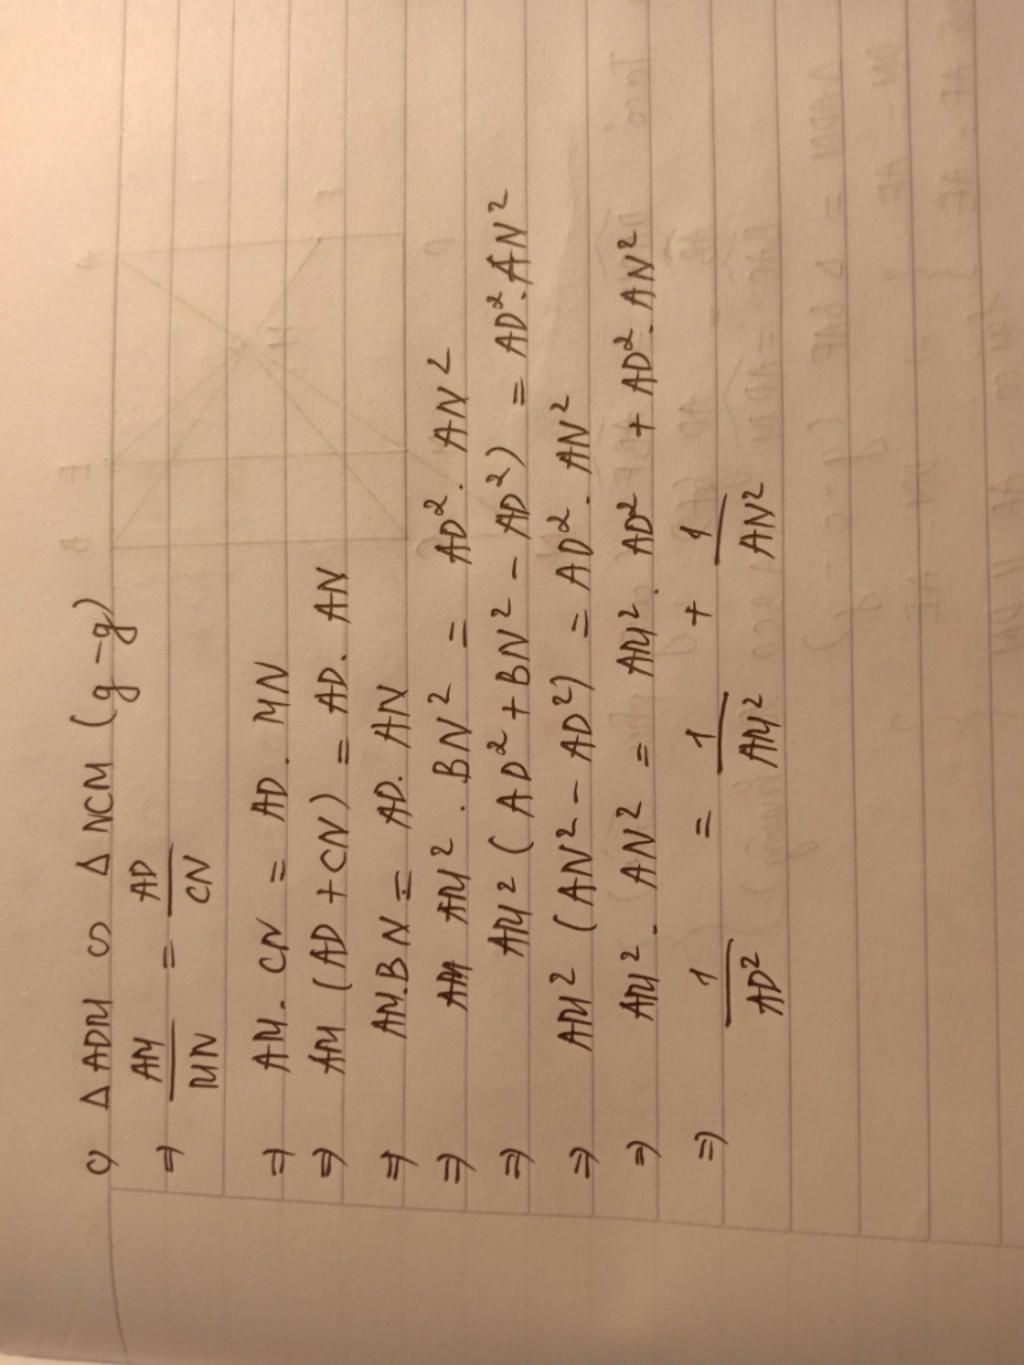 c) Δ ADM ∽ Δ NCM (g-g)
⇒ AM/MN = AD/CN
⇒ AM. CN = AD. MN
⇒ AM (AD + CN) = AD. AN
⇒ AM.BN = AD. AN
⇒ AM² . BN² = AD². AN²
⇒ AM² (AD² + BN² - AD²) = AD². AN²
⇒ AM² (AN² - AD²) = AD². AN²
⇒ AM². AN² = AM². AD² + AD². AN²
⇒ 1/AD² = 1/AM² + 1/AN²